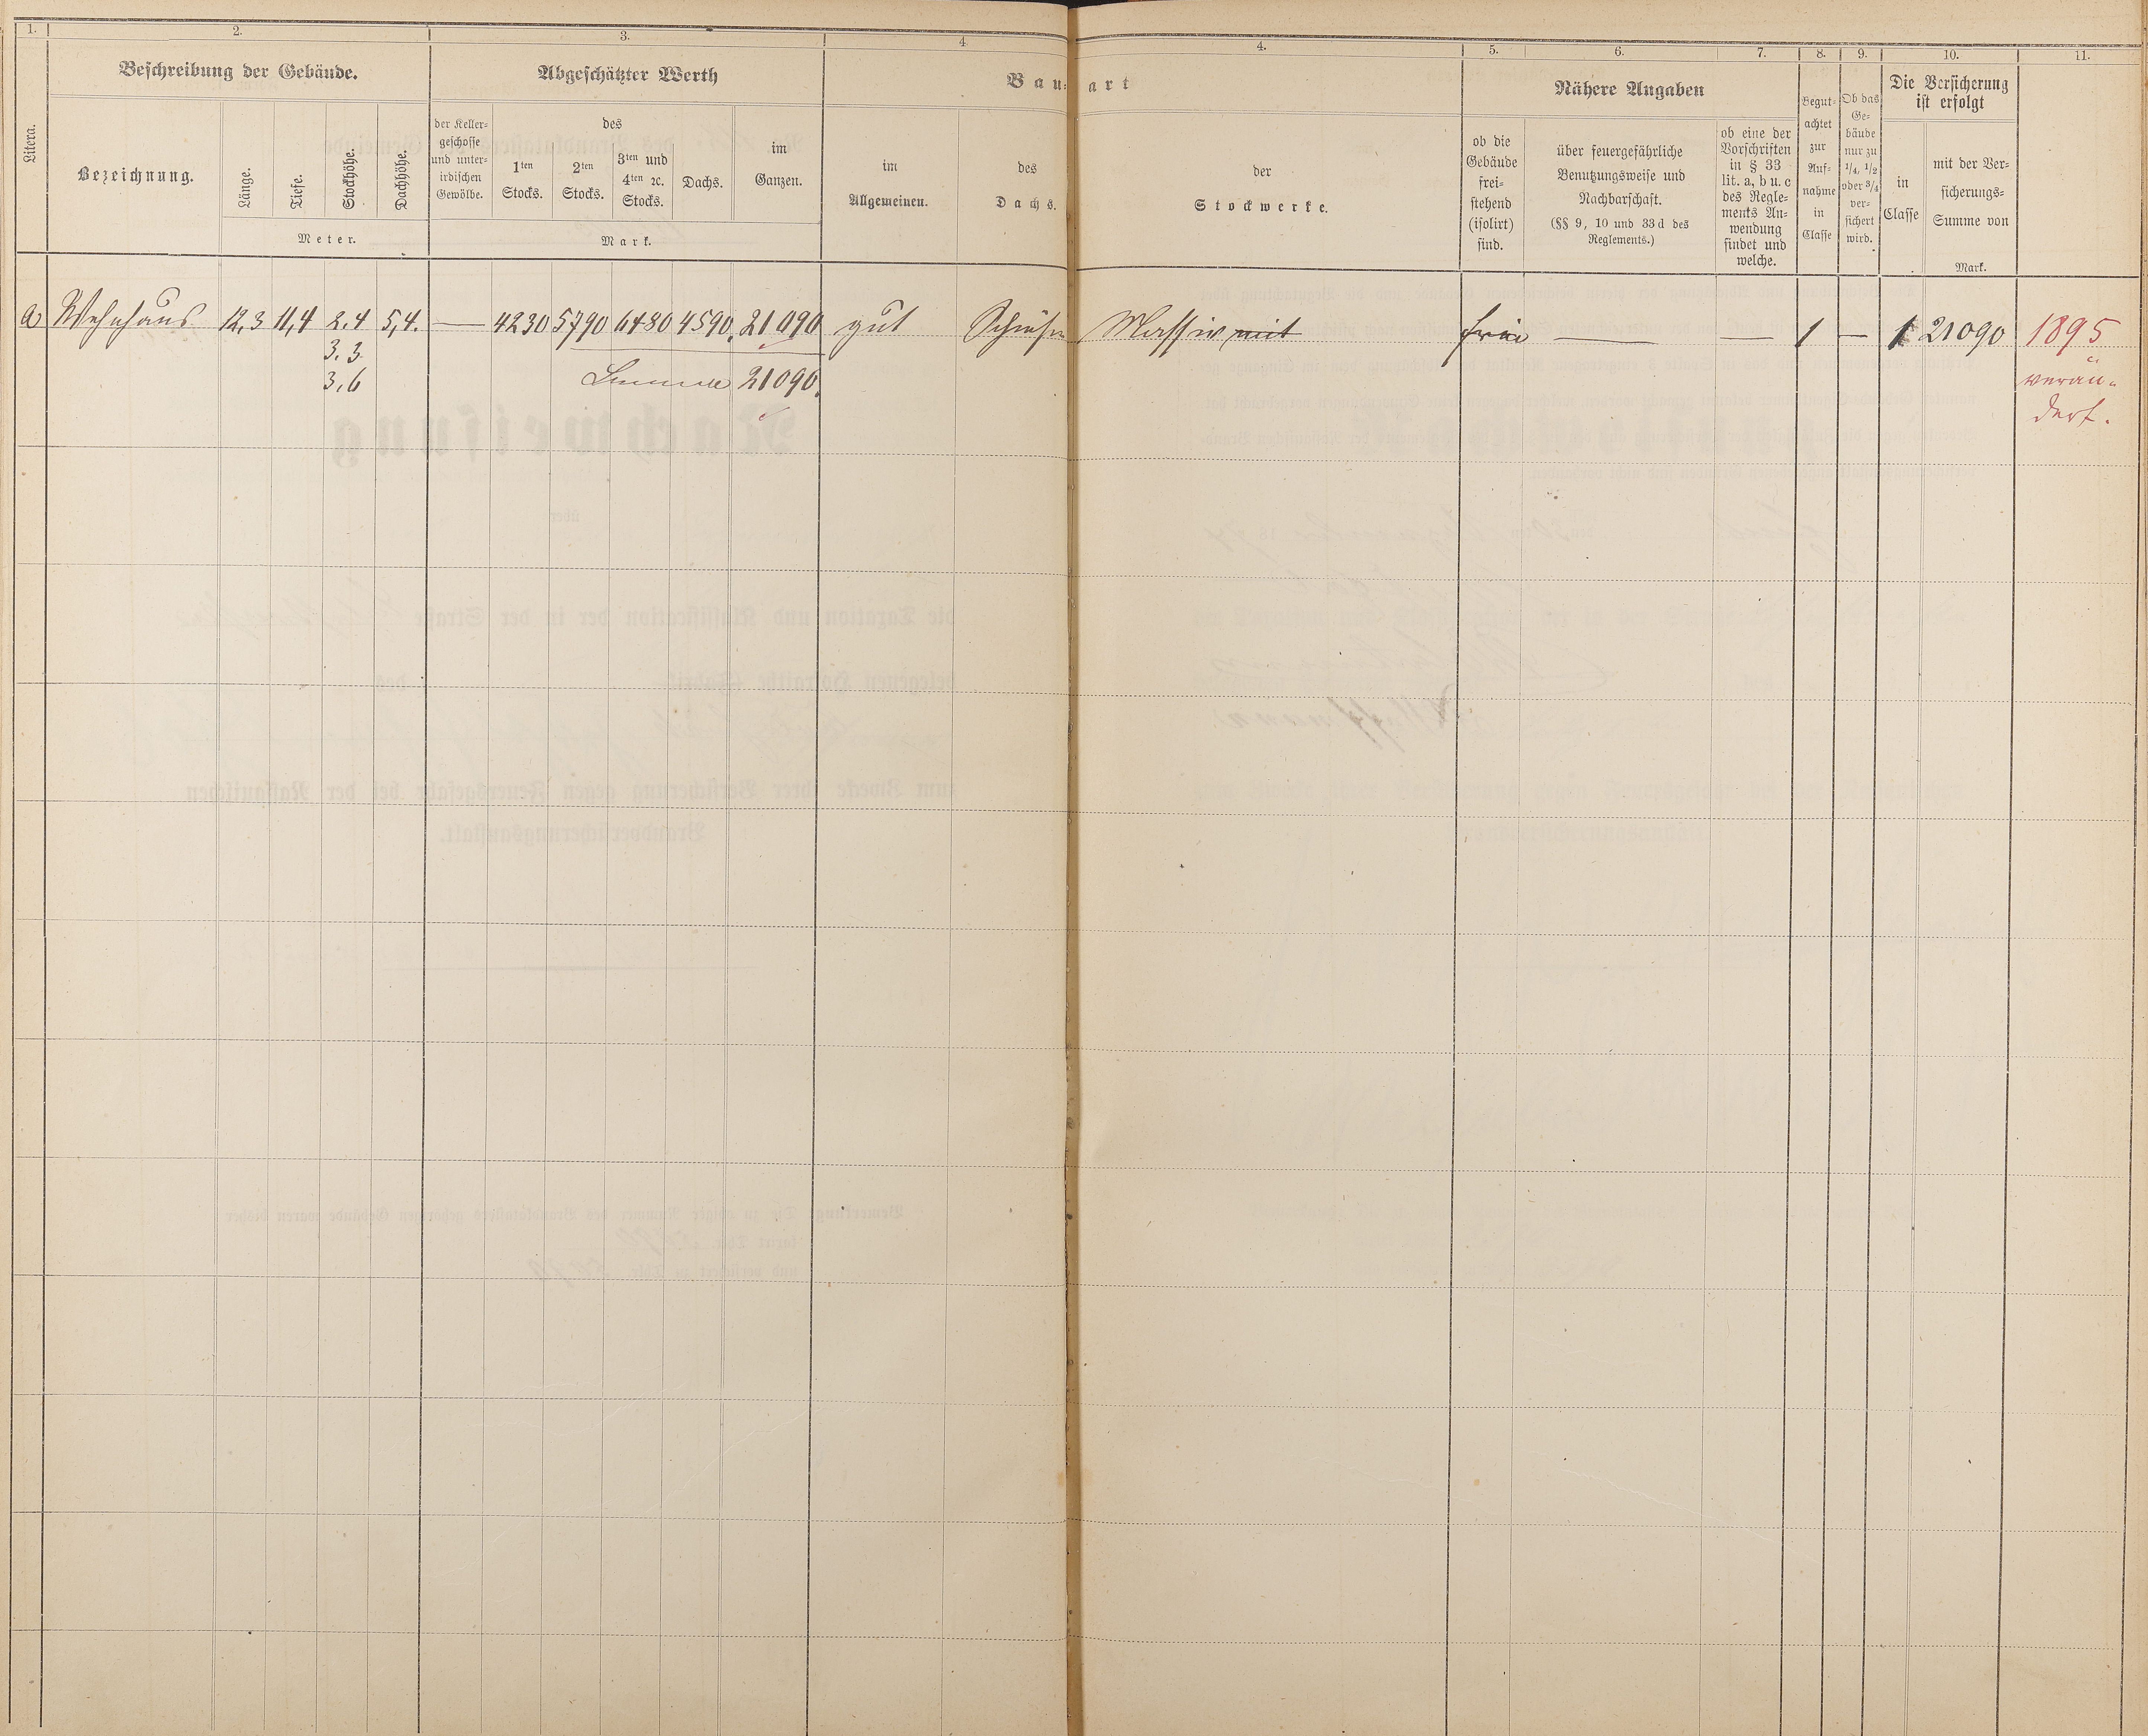 1. 2. 3. 4. 4. 5. 6. 7. 8. 9. 10. 11.
Litera.
Beschreibung der Gebäude.
Bezeichnung.
Länge.
Tiefe.
Stockhöhe.
Dachhöhe.
Meter.
Abgeschätzter Werth
der Keller-
geschosse
und unter-
irdischen
Gewölbe.
des
1ten
Stocks.
2ten
Stocks.
3ten und
4ten ꝛc.
Stocks.
Dachs.
im
Ganzen.
Mark.
Bau-art
im
Allgemeinen.
des
Dachs.
der
Stockwerke.
Nähere Angaben
ob die
Gebäude
frei-
stehend
(isolirt)
sind.
über feuergefährliche
Benutzungsweise und
Nachbarschaft.
(§§ 9, 10 und 33 d des
Reglements.)
ob eine der
Vorschriften
in § 33
lit. a, b u. c
des Regle-
ments An-
wendung
findet und
welche.
Begut-
achtet
zur
Auf-
nahme
in
Classe
Ob das
Ge-
bäude
nur zu
1/4, 1/2
oder 3/4
ver-
sichert
wird.
Die Versicherung
ist erfolgt
in
Classe
mit der Ver-
sicherungs-
Summe von
Mark.
a Wohnhaus 12,3 11,4 2,4 5,4. — 4230 5790 6480 4590. 21090 gut Schiefer Massiv mit frei — — 1 — 1 21090 1895
3,3
3,6 Summe 21090.
verän-
dert.